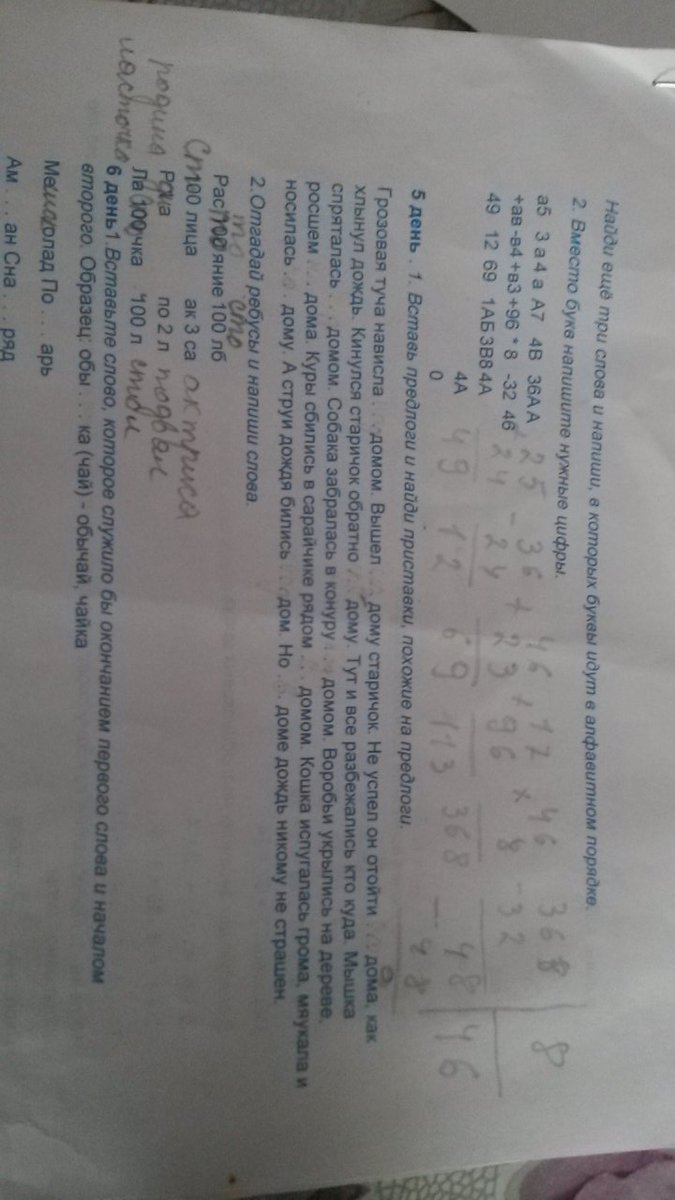 Найди ещё три слова и напиши, в которых буквы идут в алфавитном порядке.
2. Вместо букв напишите нужные цифры.
а5 3 а 4 а А7 4В 36А А
+ав -в4 +в3 +96 * 8 -32 46
49 12 69 1АБ 3В8 4А
4А
0
25 36 46 17 46 368 8
24 - 24 + 23 + 96 × 8 - 32
49 12 69 113 368 48 46
- 48
5 день . 1. Вставь предлоги и найди приставки, похожие на предлоги.
Грозовая туча нависла . . . домом. Вышел . . . дому старичок. Не успел он отойти . . . дома, как
хлынул дождь. Кинулся старичок обратно . . . дому. Тут и все разбежались кто куда. Мышка
спряталась . . . домом. Собака забралась в конуру . . . домом. Воробьи укрылись на дереве,
росшем . . . дома. Куры сбились в сарайчике рядом . . . домом. Кошка испугалась грома, мяукала и
носилась . . . дому. А струи дождя бились . . . дом. Но . . . доме дождь никому не страшен.
2.Отгадай ребусы и напиши слова.
то сто
Рас100яние 100 лб
Ст00 лица ак 3 са актриса
родина Р1а по 2 л подвал
ласточка Ла100чка 100 л столи
6 день1.Вставьте слово, которое служило бы окончанием первого слова и началом
второго. Образец: обы . . . ка (чай) - обычай, чайка
Ме олад По . . . арь
Ам . . . ан Сна . . . ряд